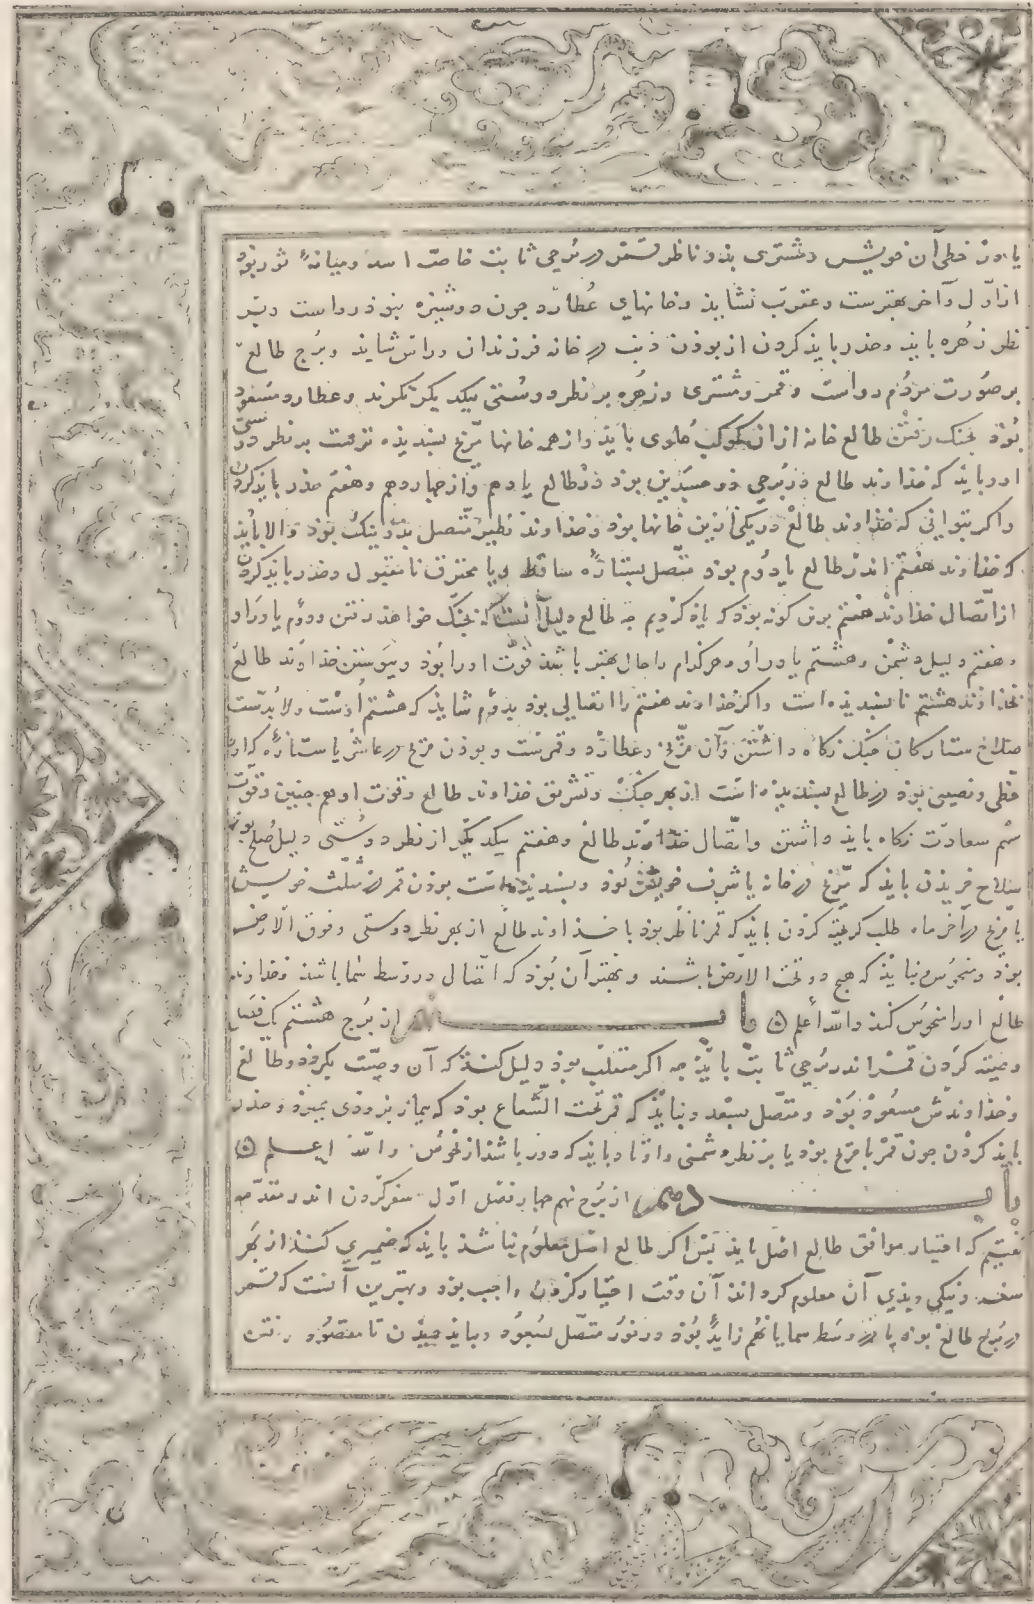 یا در خطی آن خویش و مشتری بذو ناظر قمر در برجی ثابت خاصّه اسد و میانهٔ ثور بود
از اوّل و آخر بهترست و عقرب نشاید و خانهای عُطارد چون دوشیزه بنوذ رواست و نیز
نظر زُهره باید و حذر باید کردن از بوذن ذنب در خانه فرزندان و راس شاید و برج طالع
بر صُورت مردُم رواست و قمر و مشتری و زهُره بر نظر دوستی بیکدیکر نکرند و عطارد مسعود
بُوَذ بجنک رفتن طالع خانه از ان کوکب عُلوی باید و از همه خانها مرّیخ پسندیذه ترست بر نظر دوستی
او و بایذ که خذاوند طالع در بُرجی ذو جسدین بود در طالع یا دهم و از چهاردهم و هفتم حذر بایذ کردن
و اکر بتوانی که خذاوند طالع در یکی ازین خانها بوذ و خذاوند نظیر متّصل بذو نیک بوذ و الا بایذ
که خذاوند هفتم اندر طالع یا دوُم بوذ متّصل بستارهٔ ساقط و یا محترق نامقبول و حذر باید کردن
از اتّصال خذاوند هفتم برین کونه بوذ که یاذ کردیم چه طالع دلیل آنست که بجنک خواهد رفتن و دوم یاور او
و هفتم دلیل دشمن و هشتم یاور او و هر کدام را حال بهتر باشذ قوّت او را بوذ و پیوستن خذاوند طالع
بخذاوند هشتم ناپسندیذه است و اکر خذاوند هفتم را اتصالی بوذ بدوم شاید که هشتم اوست و لا بدست
صلاح ستارکان جنک نکاه داشتن و آن مرّیخ و عطارد و قمرست و بوذن مرّیخ در عاشر یا ستارهٔ که او را
حظی و نصیبی بوذ در طالع پسندیذه است از بهر جنک و تشریق خذاوند طالع و قوّت او هم چنین و قوّت
سهم سعادت نکاه بایذ داشتن و اتّصال خذاوند طالع و هفتم بیکدیکر از نظر دوستی دلیل صُلح بوذ
سلاح خریذن بایذ که مرّیخ در خانه یا شرف خویش بوذ و پسندیذه است بوذن قمر در مثلّث خویش
یا مرّیخ در آخر ماه طلب کریخته کردن بایذ که قمر ناظر بوذ با خذاوند طالع از بهر نظر دوستی و فوق الارض
بوذ و منحوس نبایذ که هیچ دو تحت الارض باشند و بهتر آن بُوَذ که اتّصال در وسط سما باشذ و خذاوند
طالع او را منحوس کند و الله أعلم باب از بُرج هشتم یک فصل
وصیّت کردن قمر اندر برجی ثابت بایذ چه اکر منقلب بوذ دلیل کند که آن وصیّت بکردذ و طالع
و خذاوندش مسعود بوذ و متّصل بسعد و نبایذ که قمر تحت الشعاع بوذ که بیمار بزودی بمیرذ و حذر
بایذ کردن چون قمر با مرّیخ بوذ یا بر نظر دشمنی و اوتاد بایذ که دور باشذ از نحوس و الله اعلم
باب از بُرج نهم چهار فصل اوّل سفر کردن اندر مقدّمه
کفتیم که اختیار موافق طالع اصل بایذ پس اکر طالع اصل معلوُم نباشذ بایذ که ضمیری کنذ از بهر
سفر و نیکی و بذی آن معلوم کرداند آن وقت اختیار کردن واجب بوذ و بهترین آنست که قمر
در بُرج طالع بوذ یا در وسط سما یا نهم زایدُ بُوذ در نور متّصل بسُعود و بایذ تا مقصوُد رفتن